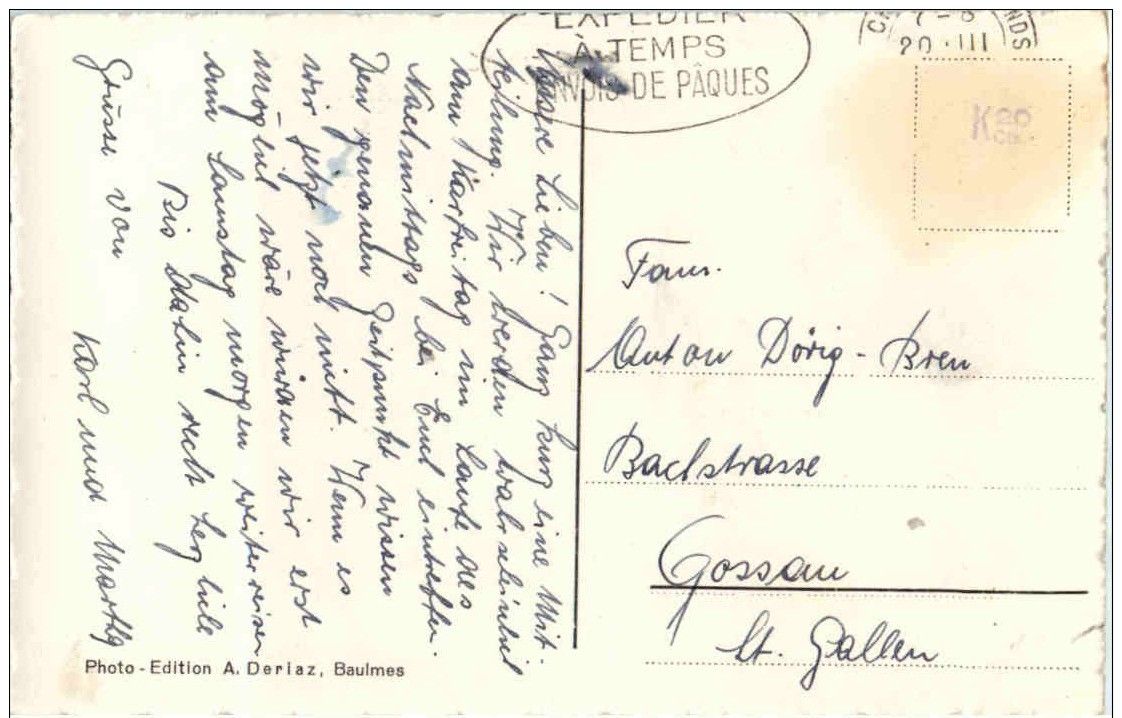 Meine Lieben! Ganz kurz eine Mit-
teilung. Wir werden wahrscheinlich
am Karfreitag im Laufe des
Nachmittags bei Euch eintreffen.
Den genauen Zeitpunkt wissen
wir jetzt noch nicht. Wenn es
möglich wäre würden wir erst
am Samstag morgen weiterreisen
Bis dahin recht herzliche
Grüsse von Karl und Marthy
EXPEDIER
À TEMPS
ENVOIS DE PÂQUES
NDS
20·III
Fam.
Anton Dörig-Bren
Bachstrasse
Gossau
St. Gallen
Photo-Edition A. Deriaz, Baulmes